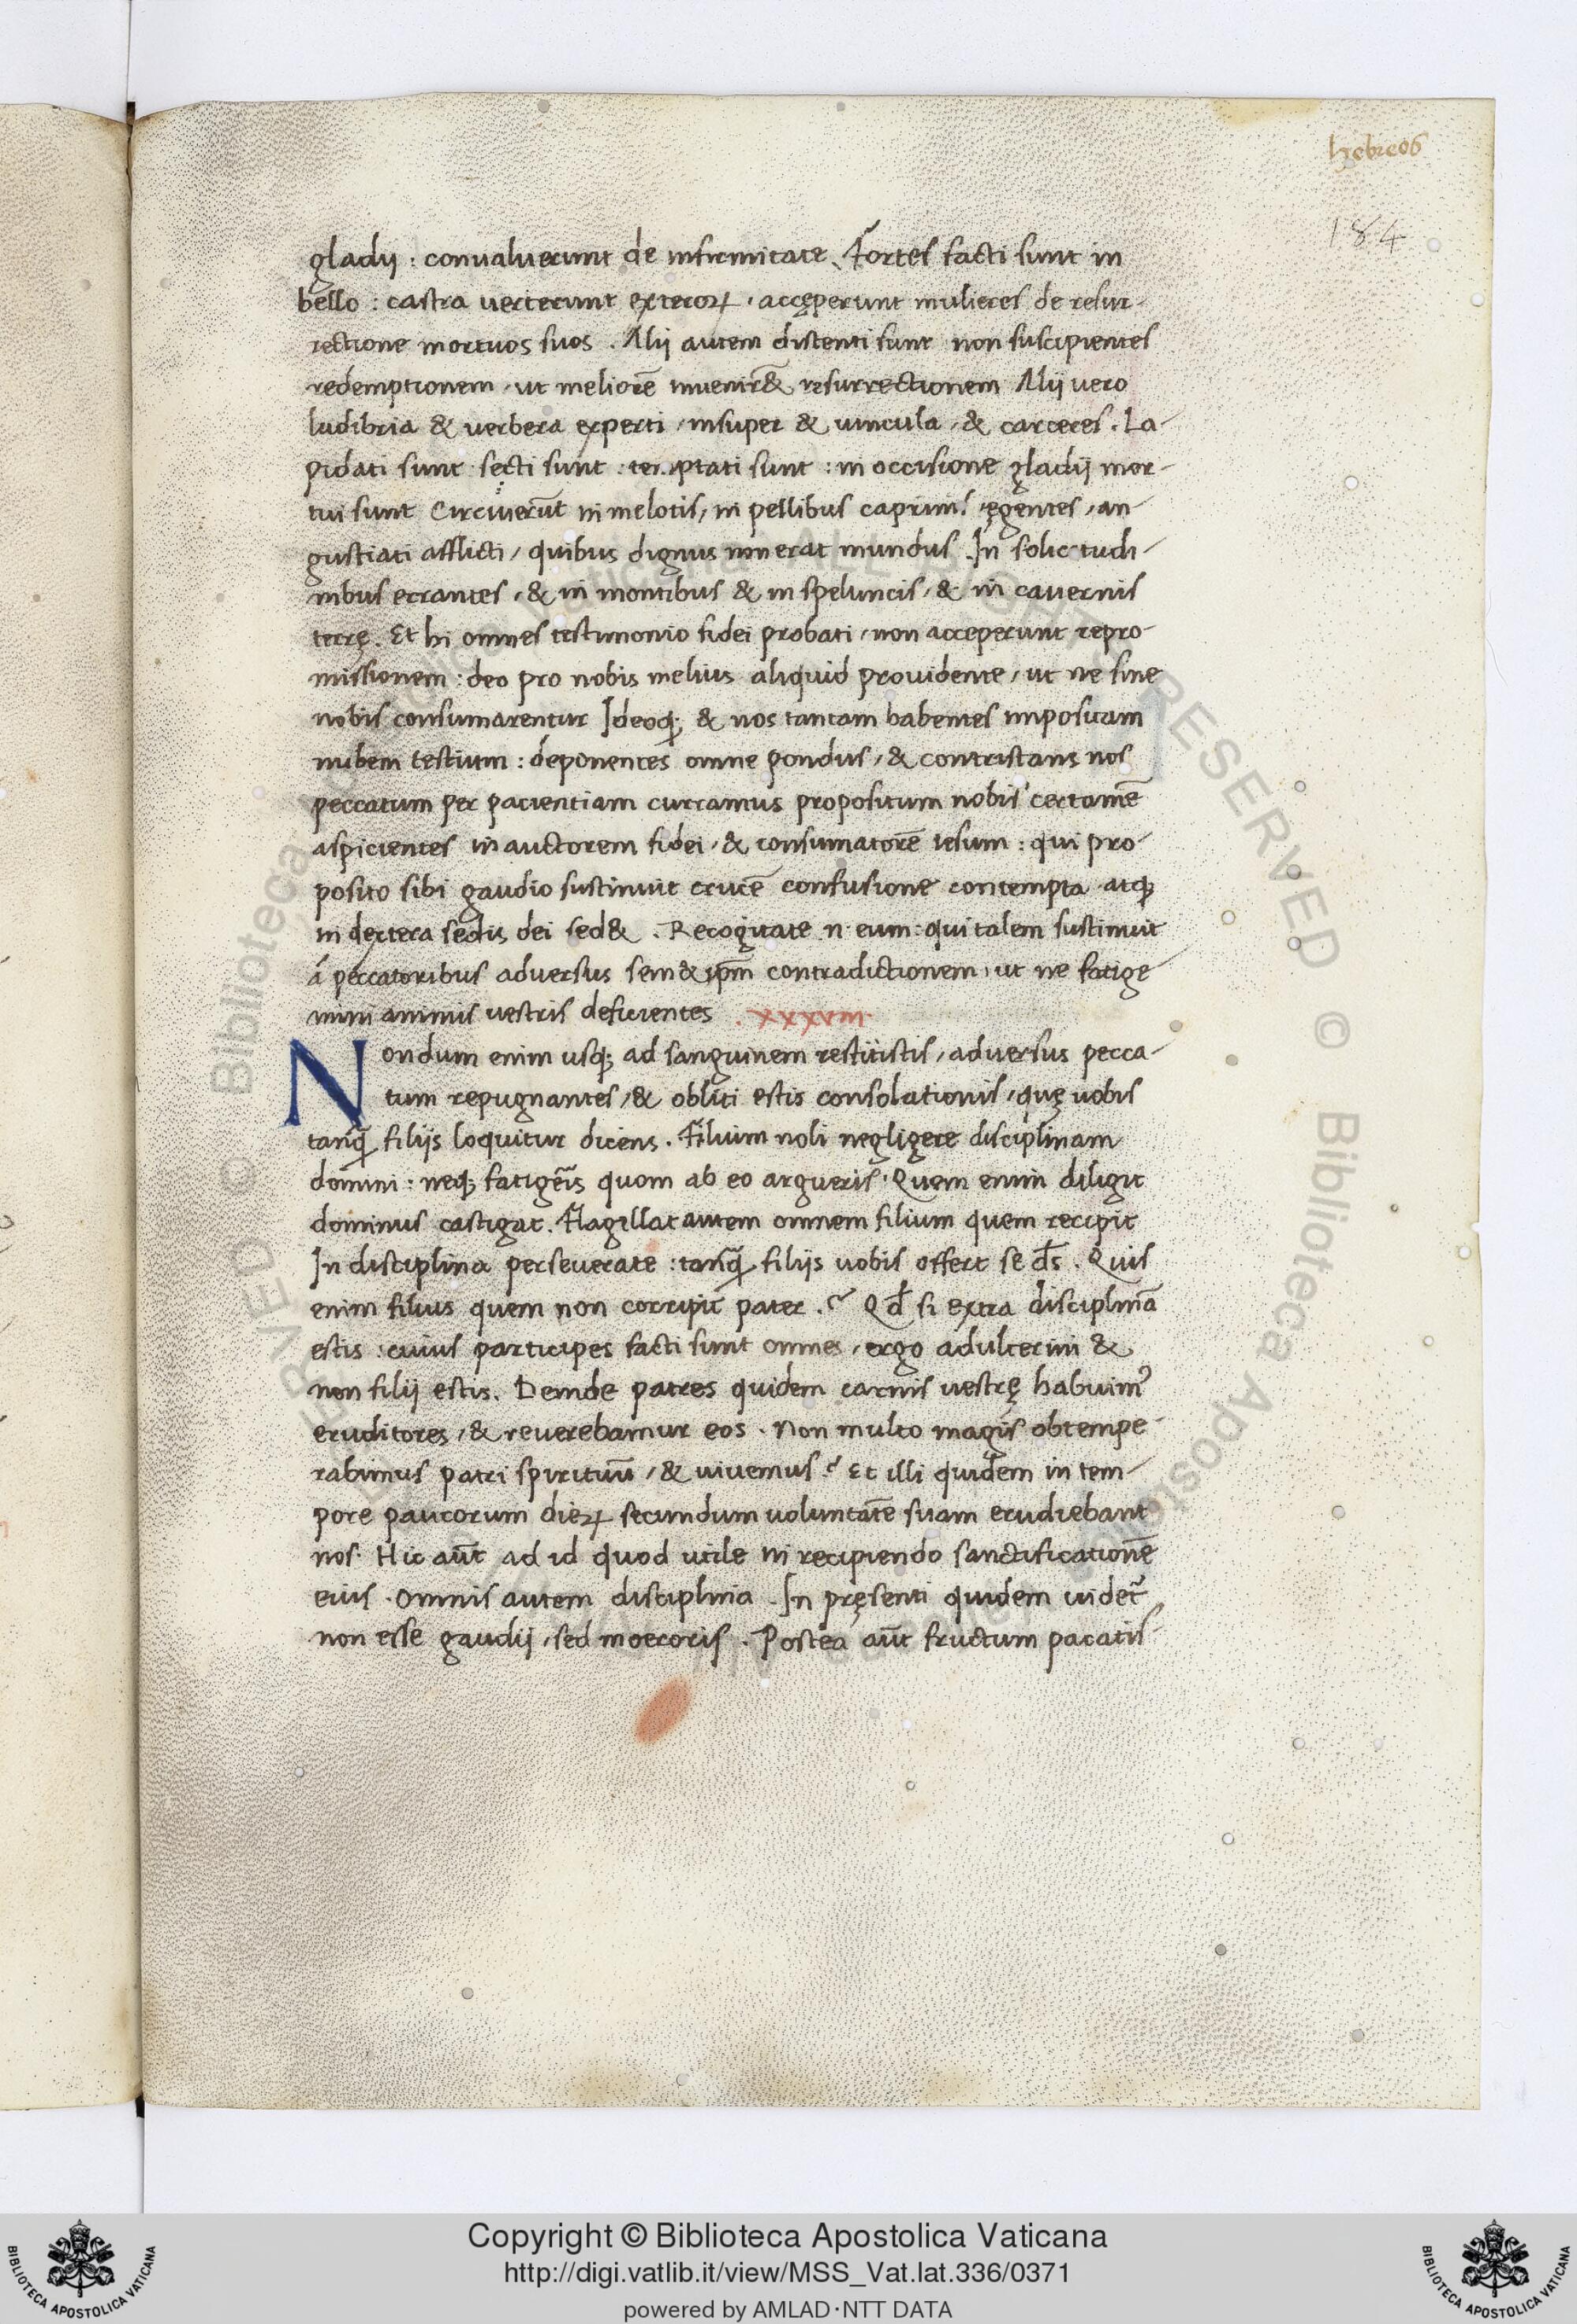 hebreos
184
gladii : convaluerunt de infirmitate . Fortes facti sunt in
bello : castra verterunt exteroꝝ , accęperunt mulieres de resur-
rectione mortuos suos . Alij autem distenti sunt non suscipientes
redemptionem , ut meliorē invenirēt& resurrectionem Alij vero
ludibria & verbera experti , insuper & vincula , & carceres . La-
pidati sunt secti sunt : temptati sunt : in occisione gladij mor-
tui sunt Circuierūt in melotis , in pellibus caprinis , ęgentes , an-
gustiati afflicti , quibus dignus non erat mundus . In solicitudi-
nibus errantes , & in montibus & in speluncis , & in cavernis
terrę . Et hi omnes testimonio fidei probati , non acceperunt repro-
missionem : deo pro nobis melius aliquid providente , ut ne sine
nobis consumarentur Ideoq; & nos tantam habentes impositam
nubem testium : deponentes omne pondus , & contristans nos
peccatum per pacientiam curramus propositum nobis certamē
aspicientes in auctorem fidei , & consumatorē iesum : qui pro-
posito sibi gaudio sustinuit crucē confusione contempta atq;
in dextera sedis dei sed& . Recogitate .n. eum : qui talem sustinuit
á peccatoribus adversus sem&ipm̄ contradictionem , ut ne fatige
mini animis vestris deficientes . xxxxviii
Nondum enim usq; ad sanguinem restitistis , adversus pecca-
tum repugnantes , & obliti estis consolationis , quę vobis
tanq̄ filijs loquitur dicens . Filium noli negligere disciplinam
domini : neq; fatigēris quom ab eo argueris . Quem enim diligit
dominus castigat . Flagellat autem omnem filium quem recipit
In disciplina perseverate : tanq̄ filijs vobis offert se d̄s . Quis
enim filius quem non corripit pater . ? Qd̄ si extra disciplinā
estis : cuius participes facti sunt omnes , ergo adulterini &
non filij estis . Deinde patres quidem carnis vestrę habuimꝰ
eruditores , & reverebamur eos . Non multo magis obtempe-
rabimus patri spirituū , & vivemus ? Et illi quidem in tem-
pore paucorum dieꝝ secundum voluntatē suam erudiebant
nos . Hic aūt ad id quod utile in recipiendo sanctificationē
eius . Omnis autem disciplina . In pręsenti quidem videt᷑
non esse gaudij , sed moeroris . Postea aūt fructum pacatis-
Copyright © Biblioteca Apostolica Vaticana
http://digi.vatlib.it/view/MSS_Vat.lat.336/0371
powered by AMLAD·NTT DATA